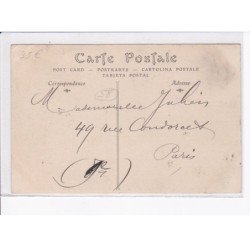 35€
Carte Postale
POST CARD — POSTKARTE — CARTOLINA POSTALE
TARJETA POSTAL
Correspondance
Adresse
Mademoiselle Julien
49 rue Condorcet
Paris